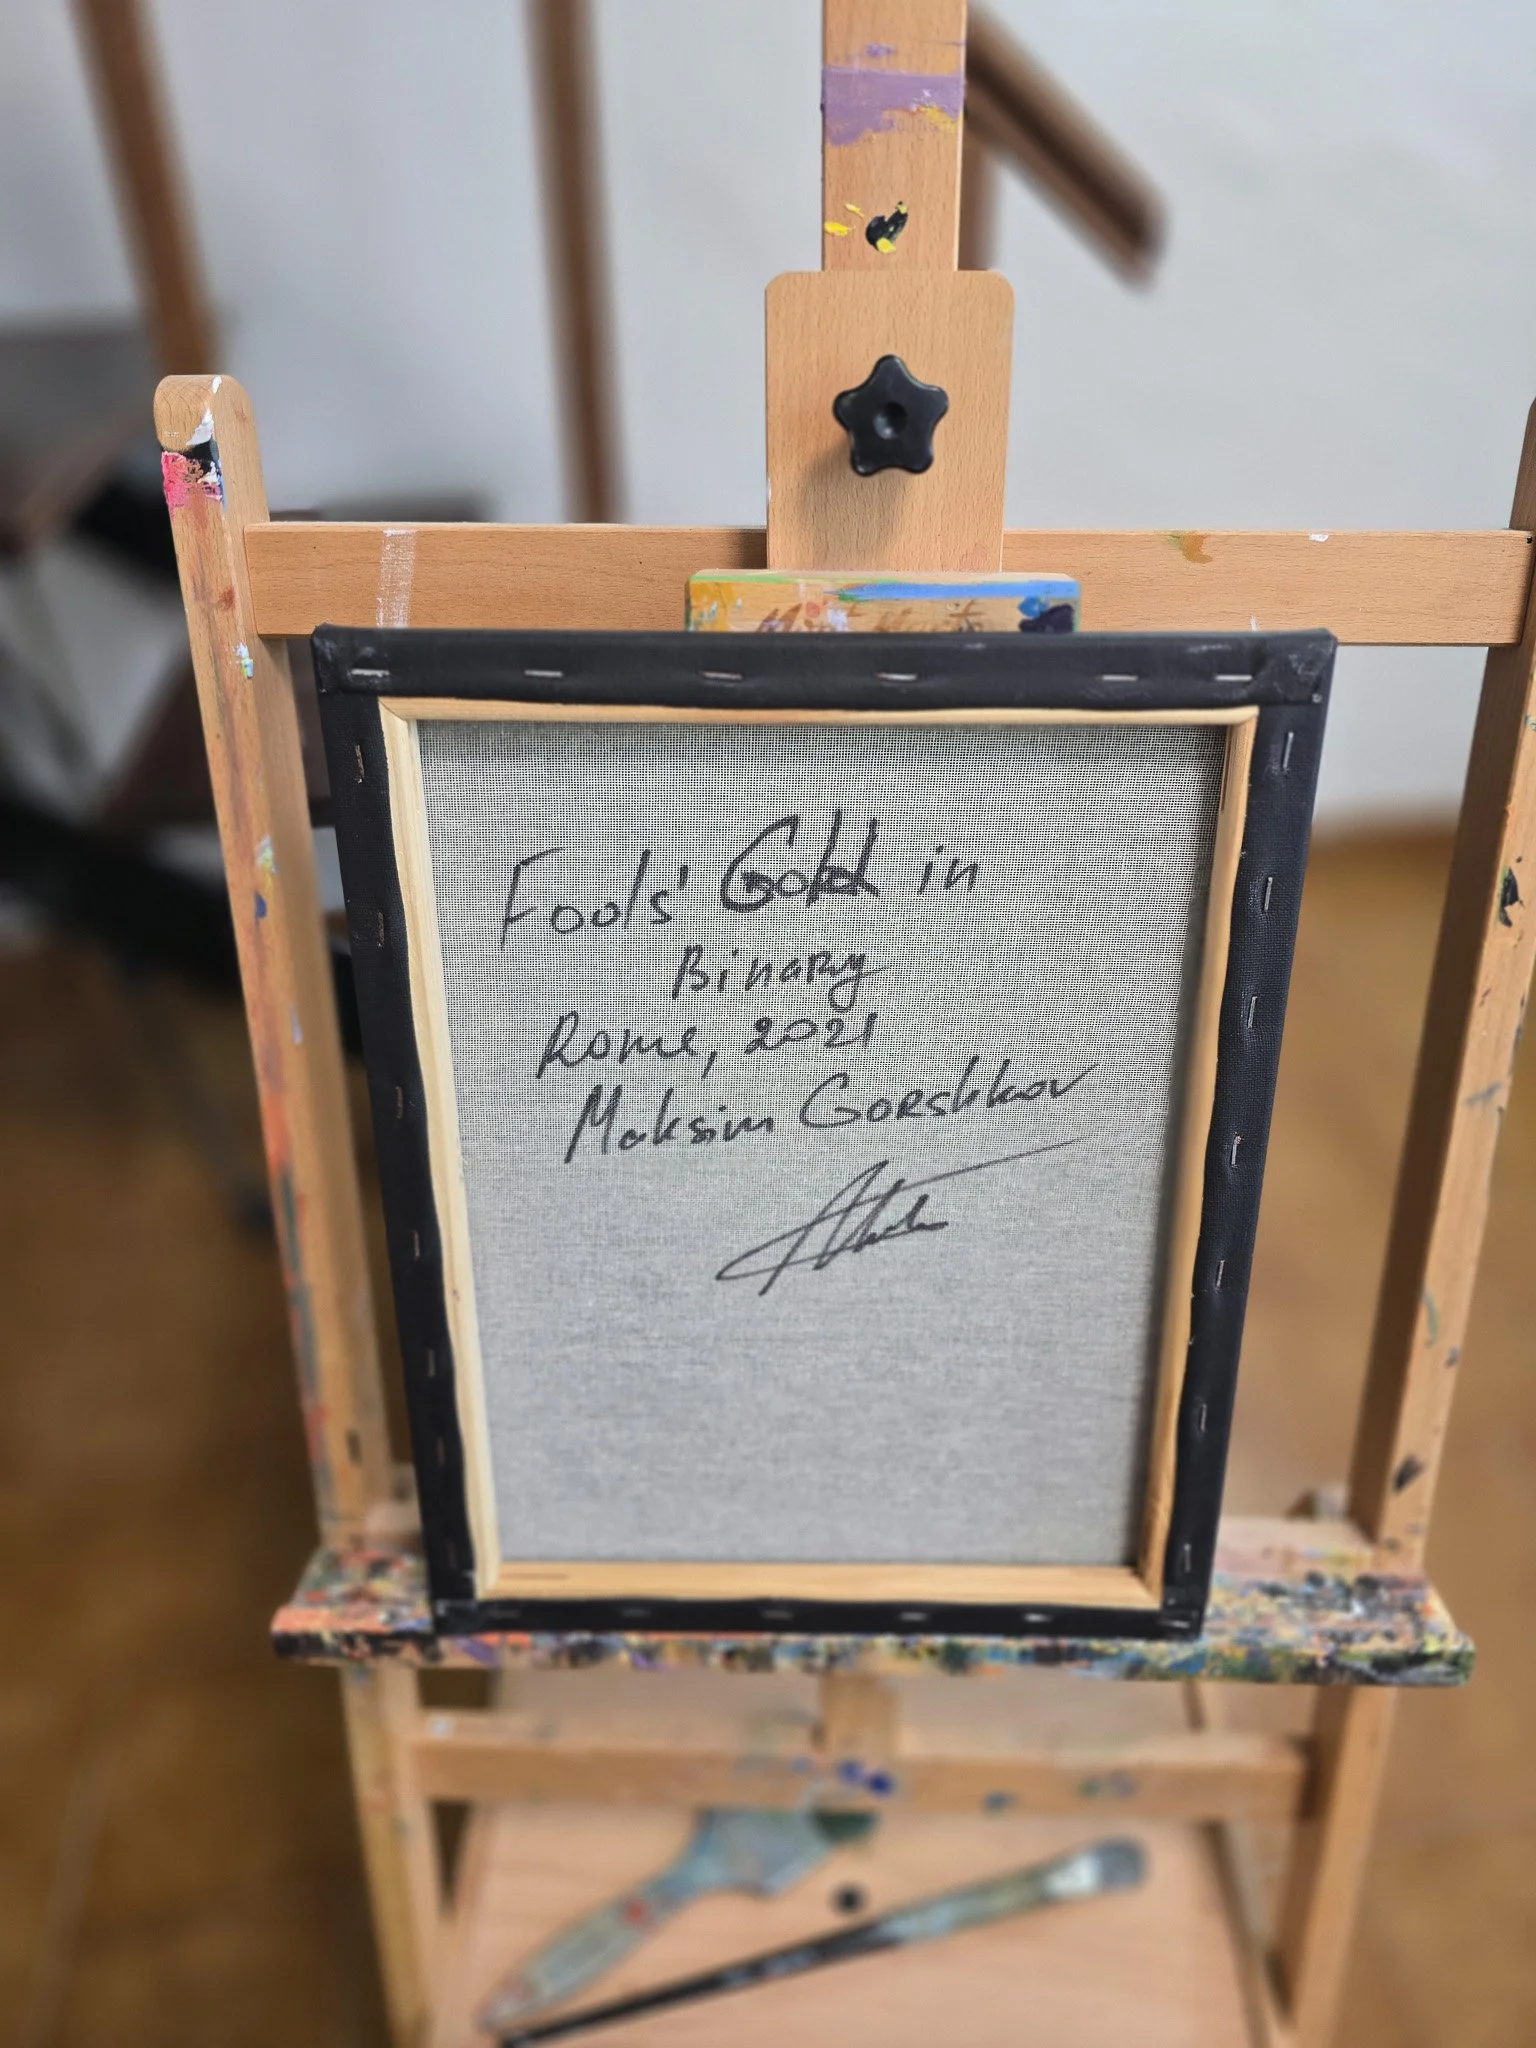 Fools' Gold in
Binary
Rome, 2021
Maksim Gorshkov